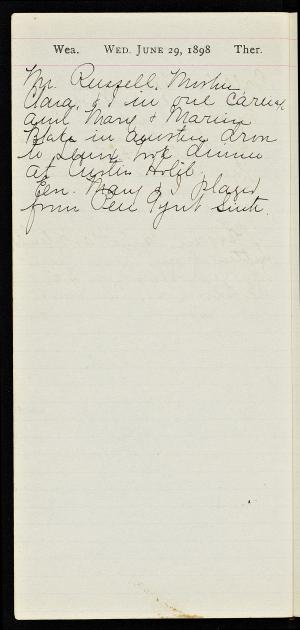 Wea. WED. JUNE 29, 1898 Ther.
Mr. Russell, Mother,
Clara, & I in one carriage
and Mary & Marion
Blake in another drove
to took dinner
at Curtis Hotel.
Eve. Mary & I played
from Peer Gynt Suite.